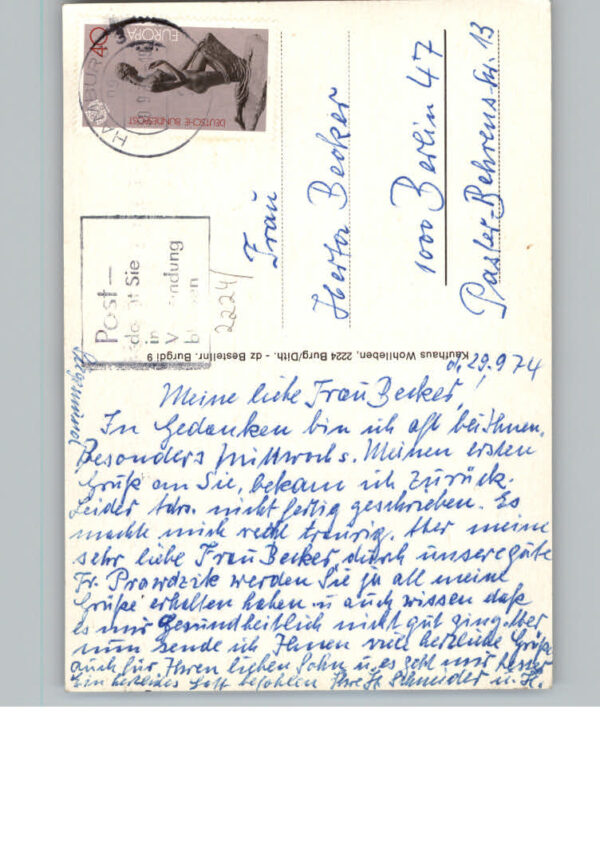 HAMBURG
40
EUROPA
DEUTSCHE BUNDESPOST
Post—
Sie
in
V
2224/
Frau
Herta Becker
1000 Berlin 47
Pastor-Behrens-Str. 13
Kaufhaus Wohllieben, 2224 Burg/Dith. - dz Bestellnr. Burgdi 9
d. 29.9.74
Meine liebe Frau Becker!
In Gedanken bin ich oft bei Ihnen.
Besonders Mittwochs. Meinen ersten
Gruß an Sie, bekam ich zurück.
Leider Adrs. nicht fertig geschrieben. Es
machte mich recht traurig. Aber meine
sehr liebe Frau Becker durch unsere gute
Fr. Prawdzik werden Sie ja all meine
Grüße erhalten haben u. auch wissen daß
es mir Gesundheitlich nicht gut ging. Aber
nun sende ich Ihnen viele herzliche Grüße
auch für Ihren lieben Sohn u. es geht mir besser
Ein herzliches Gott befohlen Ihre H. Schneider u. H.